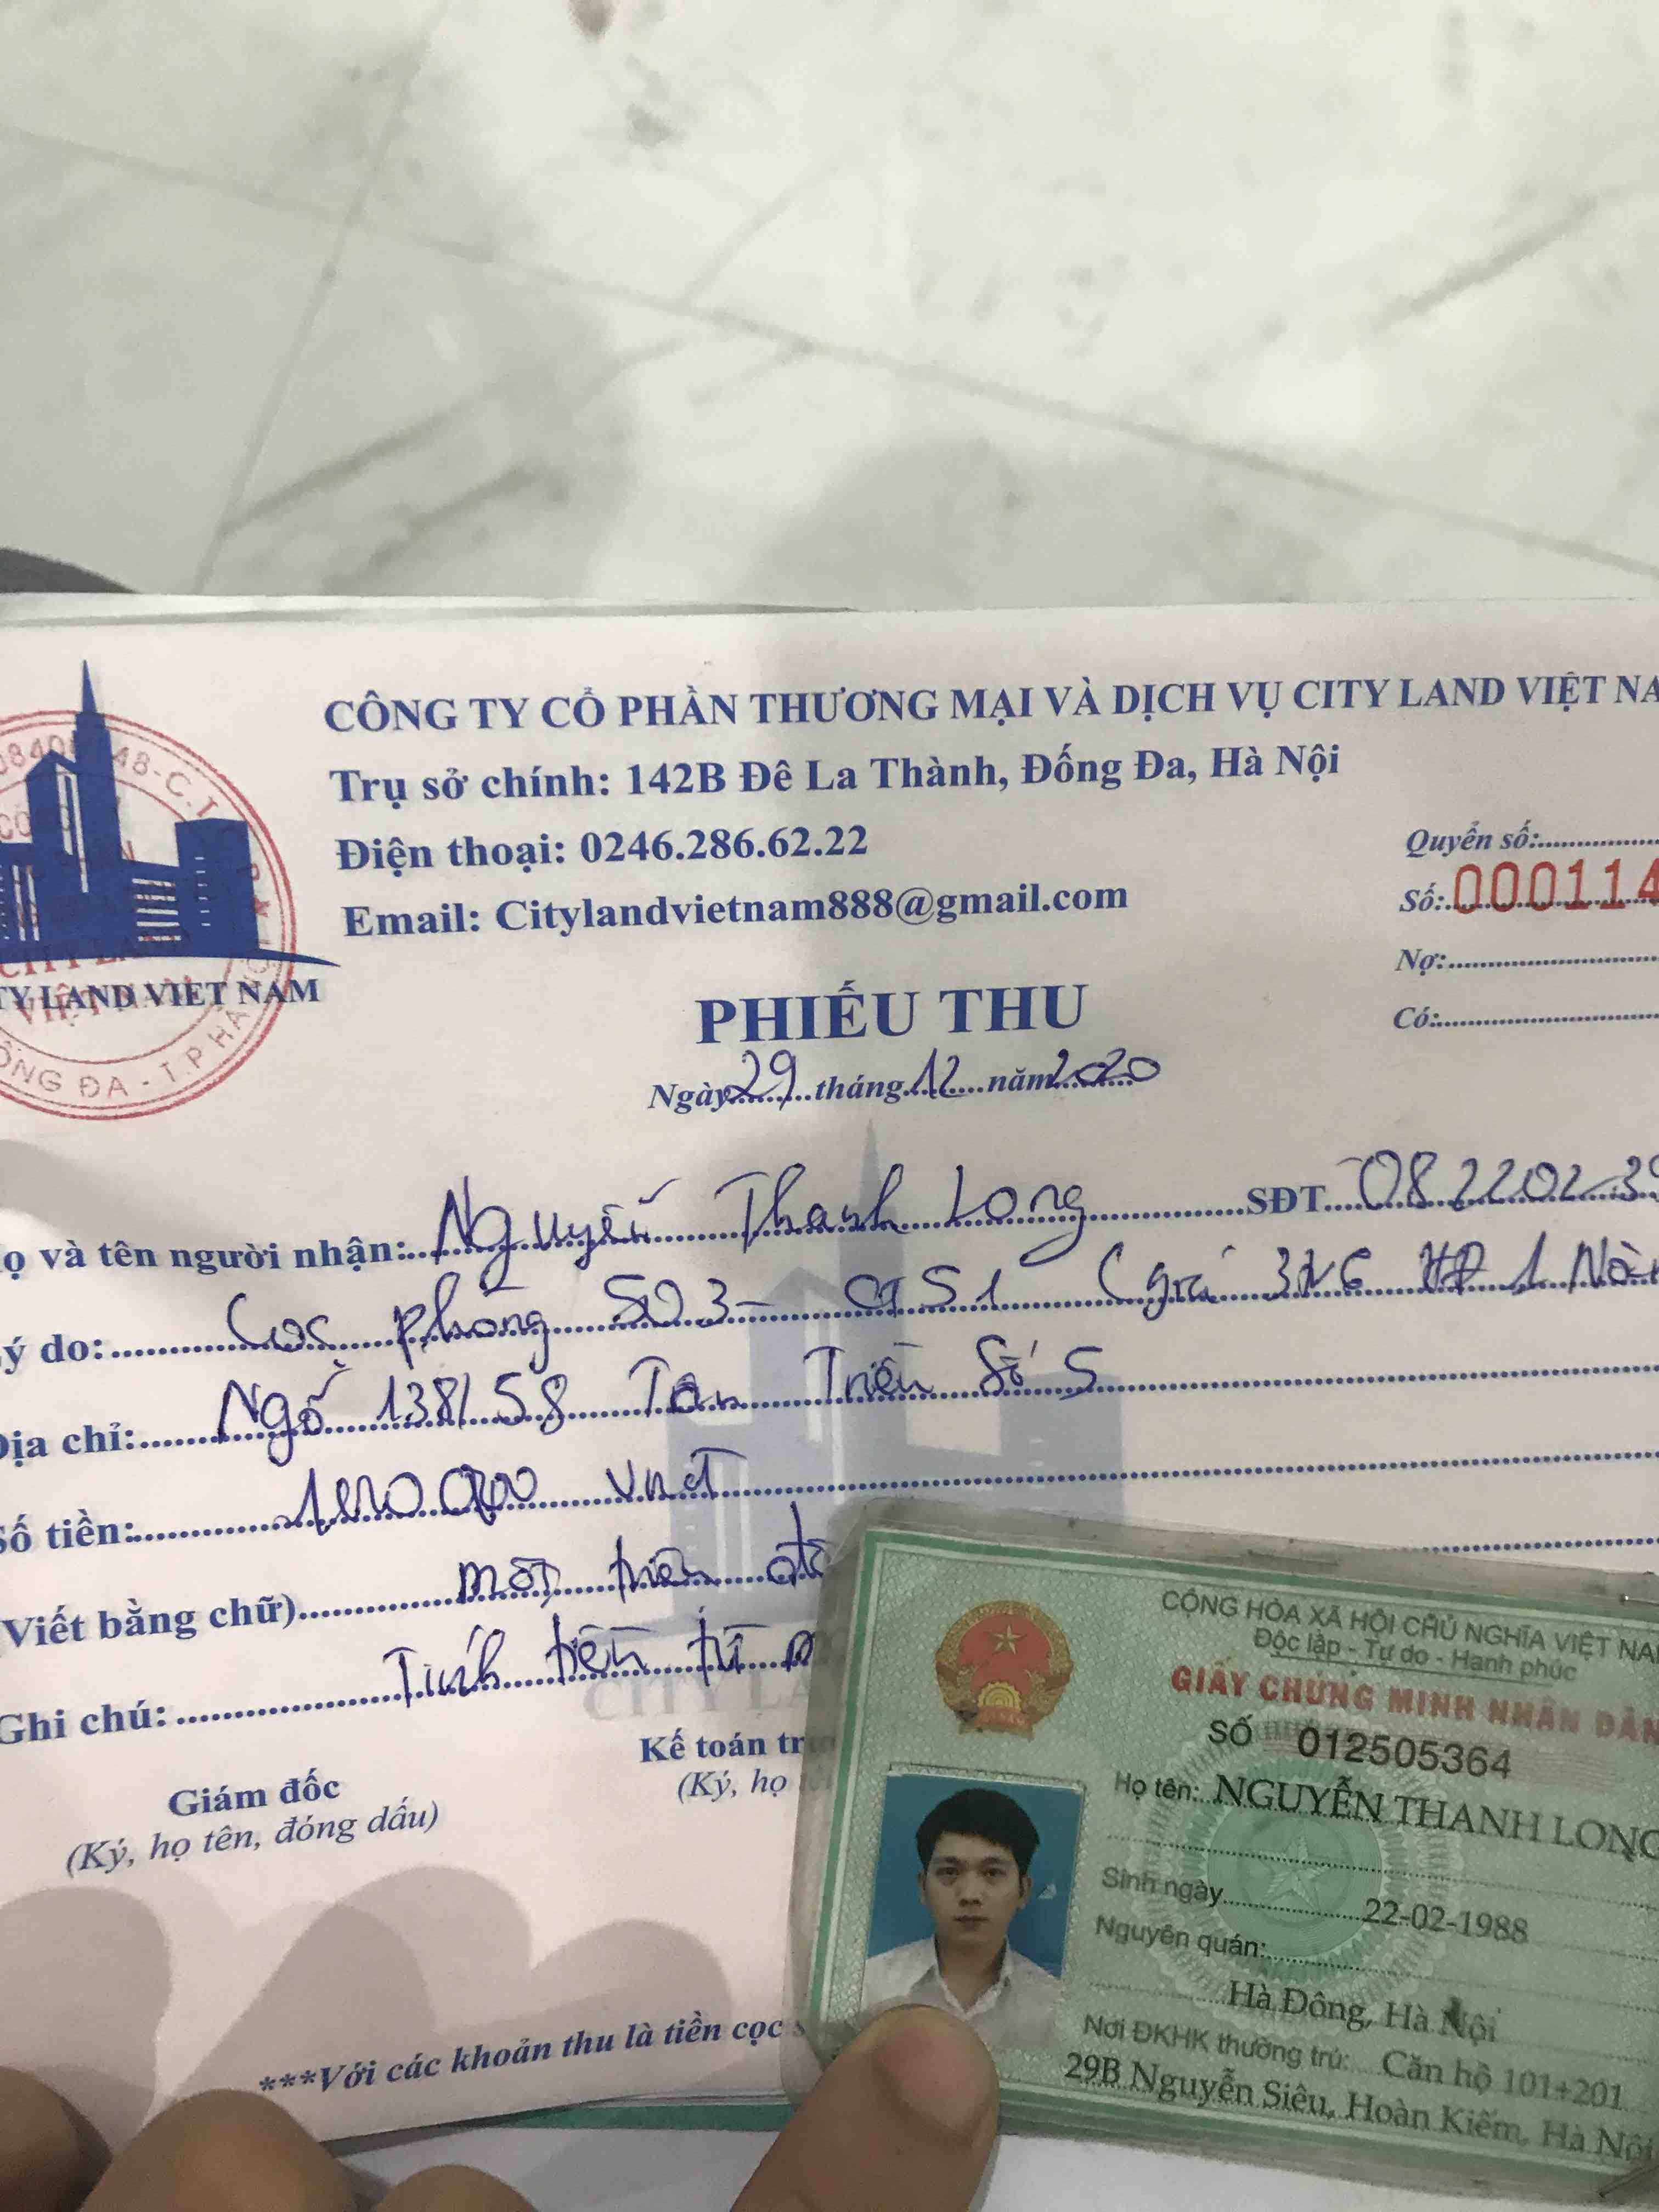 CÔNG TY CỔ PHẦN THƯƠNG MẠI VÀ DỊCH VỤ CITY LAND VIỆT NA
Trụ sở chính: 142B Đê La Thành, Đống Đa, Hà Nội
Điện thoại: 0246.286.62.22
Email: Citylandvietnam888@gmail.com
Quyển số:
Số: 000114
Nợ:
Có:
TY LAND VIET NAM
ỐNG ĐA - T.P HÀ
PHIẾU THU
Ngày 29 tháng 12 năm 2020
ọ và tên người nhận: Nguyễn Thanh Long SĐT 082202 39
ý do: Cọc phòng 503 - (giá HĐ 1 Năm
Địa chỉ: Ngõ 138/58 Tân Triều Số 5
Số tiền: 1000.000 vnđ
(Viết bằng chữ) một triệu
Ghi chú: Tính tiền từ
Giám đốc
(Ký, họ tên, đóng dấu)
Kế toán
(Ký, họ
***Với các khoản thu là tiền cọc
CỘNG HÒA XÃ HỘI CHỦ NGHĨA VIỆT NAM
Độc lập - Tự do - Hạnh phúc
GIẤY CHỨNG MINH NHÂN DÂN
SỐ 012505364
Họ tên: NGUYỄN THANH LONG
Sinh ngày 22-02-1988
Nguyên quán:
Hà Đông, Hà Nội
Nơi ĐKHK thường trú: Căn hộ 101+201
29B Nguyễn Siêu, Hoàn Kiếm, Hà Nội